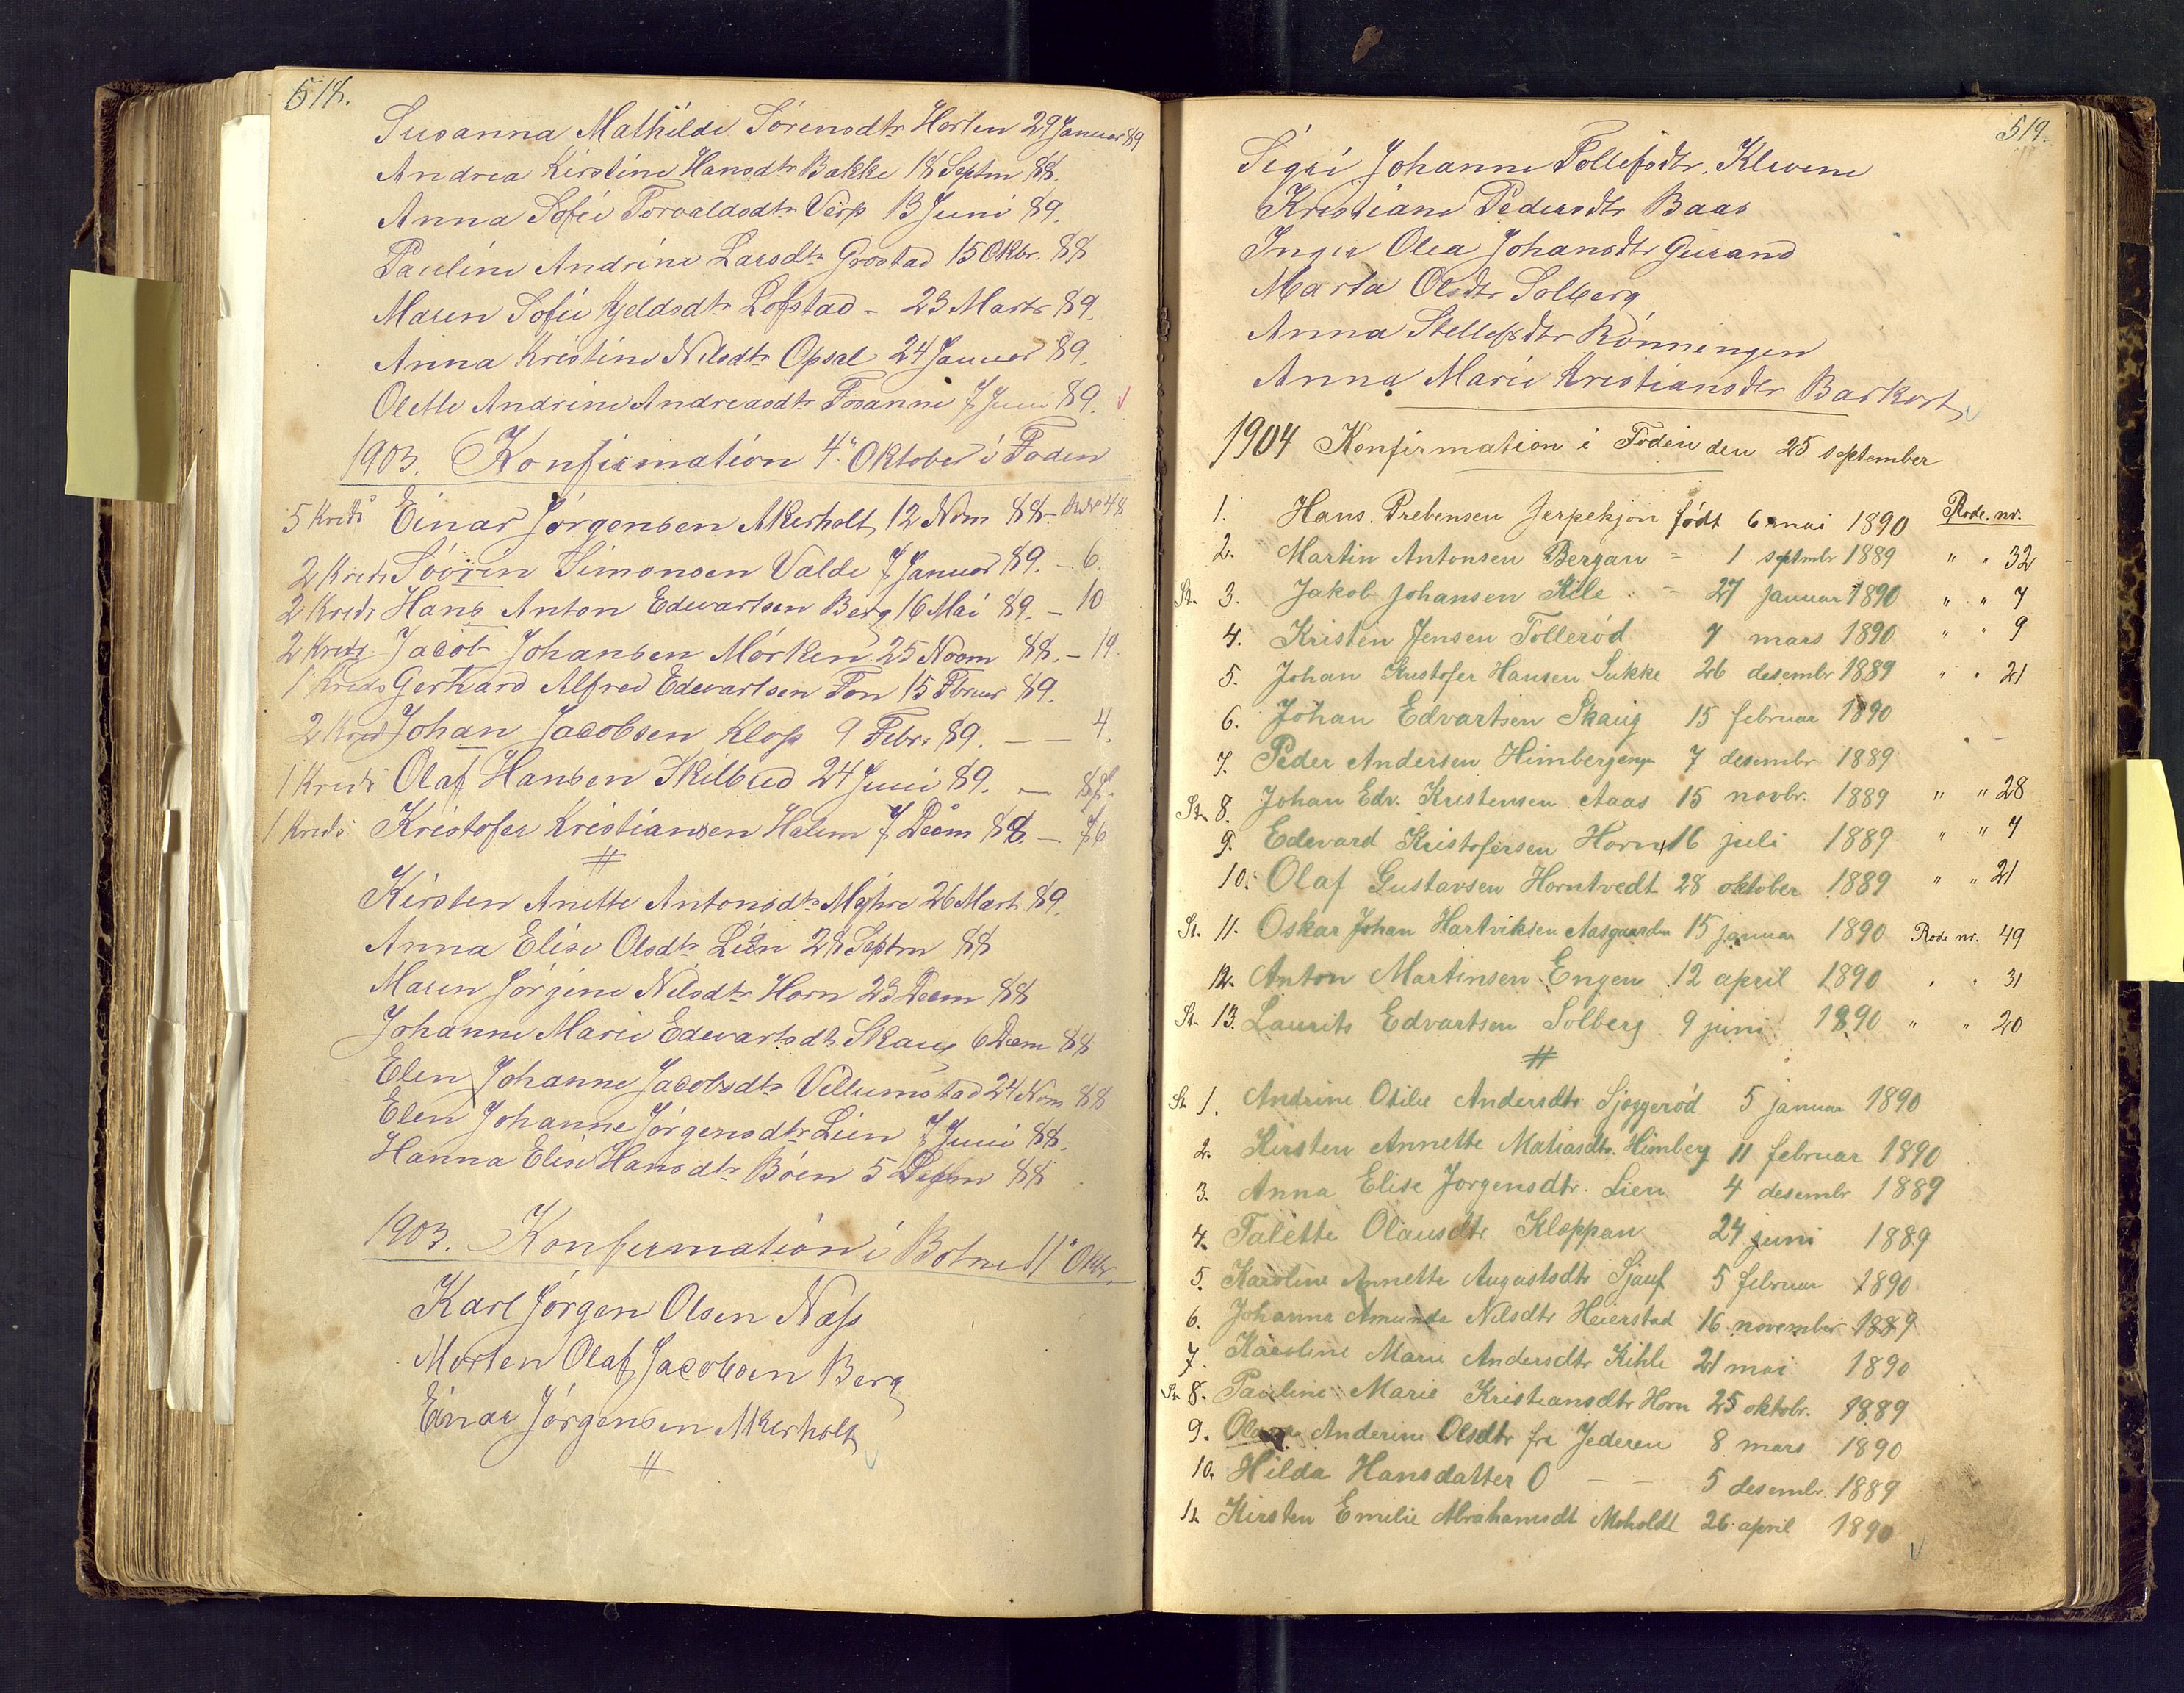 518.
Susanna Mathilde Sörensdtr Horten 29 Januar 89
Andrea Kirstine Hansdtr Bakke 18 Septm 88.
Anna Sofie Torvaldsdtr Verp 13 Juni 89.
Pauline Andrine Larsdtr Grostad 15 Oktbr. 88
Maren Sofie Kjeldsdtr Lofstad - 23 Marts 89.
Anna Kristine Nilsdtr Opsal 24 Januar 89.
Olette Andrine Andreasdtr Fosanne 7 Juni 89.
1903. Konfirmation 4. Oktober i Foden
5 Kreds Einar Jörgensen Akerholt 12 Novm 88 - 48
2 Kreds Söören Simonsen Valde 7 Januar 89. - 6.
2 Kreds Hans Anton Edwartsen Berg 16 Mai 89. - 10
2 Kreds Jacob Johansen Mörken 25 Novm 88. - 19.
1 Kreds Gerhard Alfred Edwartsen Fon 15 Februar 89.
2 Kred Johan Jacobsen Klop 9 Febr. 89. - - 4.
1 Kreds Olaf Hansen Skilbred 24 Juni 89. -
1 Kreds Kristofer Kristiansen Halum 7 Decm 88. - 76
#
Kirsten Anette Antonsdtr Myhre 26 Mart. 89.
Anna Elise Olsdtr Lien 28 Septm 88
Maren Jörgine Nilsdtr Horn 23 Decm 88
Johanne Marie Edwartsdtr Skaug 6 Decm 88
Elen Johanne Jacobsdtr Vellumstad 24 Novm 88
Elen Johanne Jörgensdtr Lien 7 Juni 88.
Hanna Elise Hansdtr Böen 5 88
1903. Konfirmation i Botne 11 Oktbr.
Karl Jörgen Olsen Næss
Morten Olaf Jacobsen Berg
Einar Jörgensen Akerholt
#
519.
Sigri Johanne Tollefsdtr. Klevene
Kristiane Pedersdtr Baas
Inger Olea Johansdtr Guirand
Marta Olsdtr Solberg
Anna Stellefsdtr Rönningen
Anna Marie Kristiansdtr Barkost
1904 Konfirmation i Foden den 25 september
1. Hans Prebensen Jerpekjön født 6 mai 1890 Rode. nr.
2. Martin Antonsen Bergan = 1 septmbr 1889 " " 32
St. 3. Jakob Johansen Kile - 27 januar 1890 " " 7
4. Kristen Jensen Tollerød 7 mars 1890 " " 9
5. Johan Kristofer Hansen Sukke 26 desembr 1889 " " 21
6. Johan Edvartsen Skaug 15 februar 1890
7. Peder Andersen Himbergengn 7 desembr 1889
St. 8. Johan Edv. Kristensen Aaas 15 novbr. 1889 " " 28
9. Edevard Kristofersen Horn 16 juli 1889 " " 7
10. Olaf Gustavsen Horntvedt 28 oktober 1889 " " 21
St. 11. Oskar Johan Hartviksen Aasgaarden 15 januar 1890 Rode nr. 49
12. Anton Martinsen Engen 12 april 1890 " " 31
St. 13. Laurits Edvartsen Solberg 9 juni 1890 " " 20
#
St. 1. Andrine Otilie Andersdtr Sjøggerød 5 januar 1890
2. Kirsten Annette Matiasdtr. Himberg 11 februar 1890
3. Anna Elise Jørgensdtr. Lien 4 desembr 1889
4. Talette Olausdtr. Kloppan 24 juni 1889
5. Karoline Annette Augustsdtr Sjauf 5 februar 1890
6. Johanna Amunda Nilsdtr Heierstad 16 november 1889
7. Karoline Marie Andersdtr Kihle 21 mai 1890
St. 8. Pauline Marie Kristiansdtr Horn 25 oktobr. 1889
9. Anderine Olsdtr fra Jederen 8 mars 1890
10. Hilda Hansdatter O - - 5 desembr. 1889
11. Kirsten Emilie Abrahamsdt Moholdt 26 april 1890